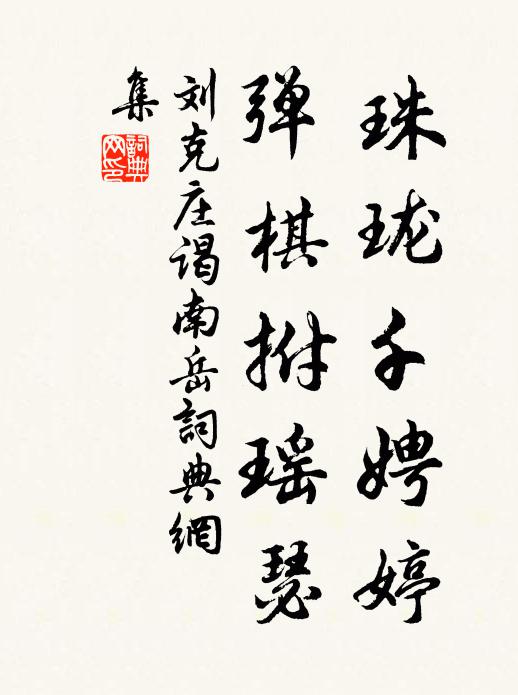 珠珑千娉婷
弹棋拊瑶瑟
刘克庄谒南岳詞典網
集
詞典
网印